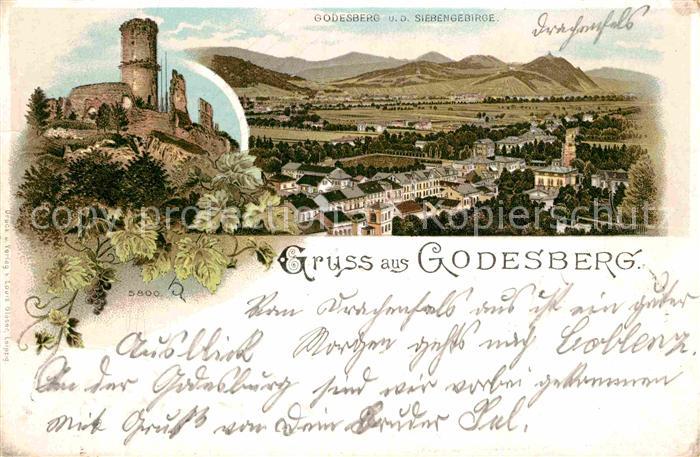 GODESBERG u. d. SIEBENGEBIRGE.
Drachenfels
www.oldthing.de
Copyright protection · Kopierschutz
Druck u. Verlag v. Louis Glaser, Leipzig
5800.
Gruss aus GODESBERG.
Von Drachenfels aus ist ein guter
Ausblick Morgen gehts nach Coblenz
An der Godesburg sind wir vorbei gekommen
Mit Gruß von Dein Bruder